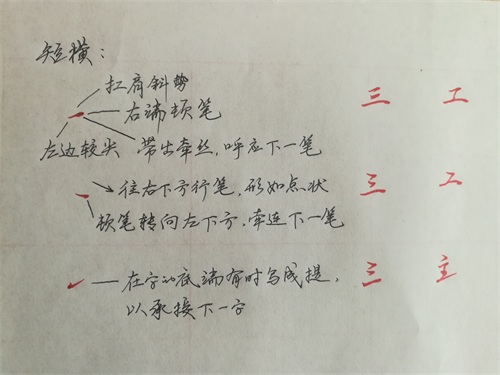 短横：
扛肩斜势
右端顿笔
左边较尖 带出牵丝，呼应下一笔
三 工
往右下方行笔，形如点状
顿笔转向左下方，牵连下一笔
三 工
在字的底端有时写成提，
以承接下一字
三 主